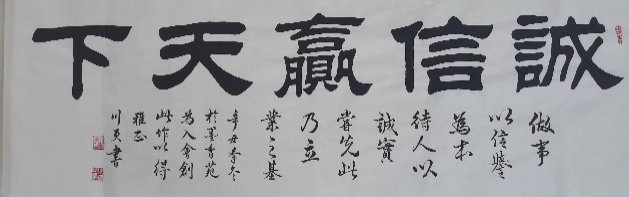 誠信贏天下
做事
以信譽
為本
待人以
誠實
當先此
乃立
業之基
辛丑季冬
於墨香苑
為入會創
此作以得
雅正
川页書